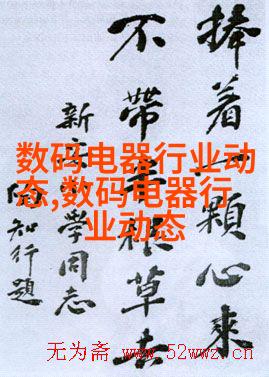 捧着一顆心來
不帶半根草去
新安小學同志
陶知行題
数码电器行业动
态,数码电器行
业动态
无为斋 www.52wwz.cn